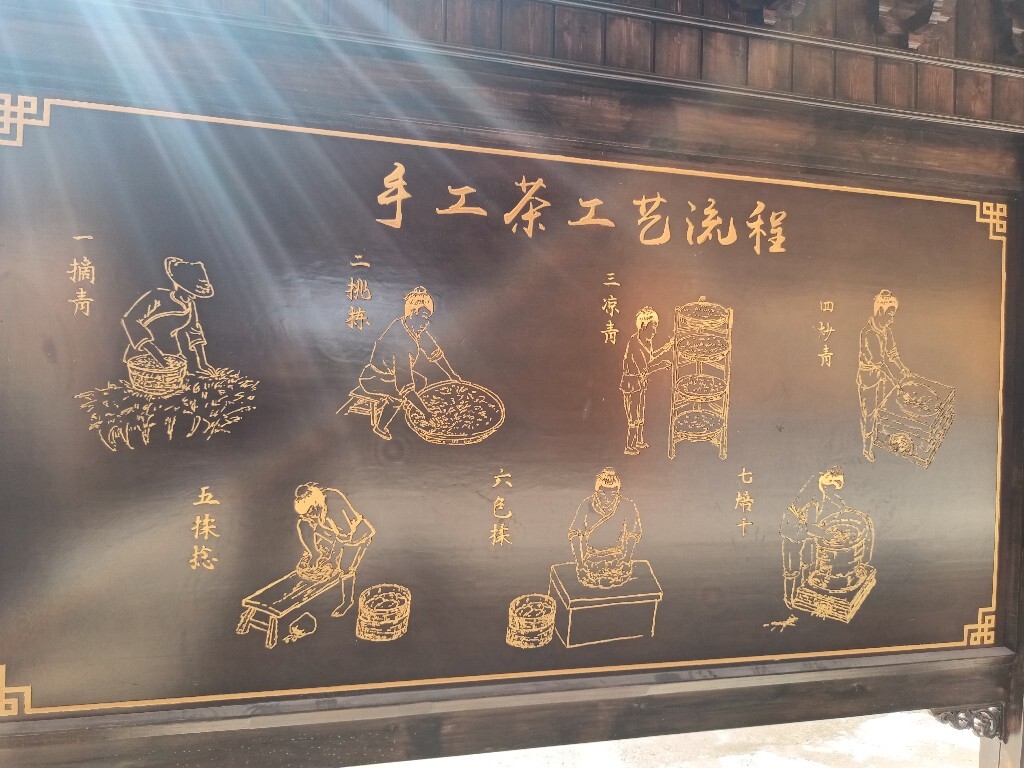 手工茶工艺流程
一摘青
二挑拣
三凉青
四炒青
五揉捻
六包揉
七焙干